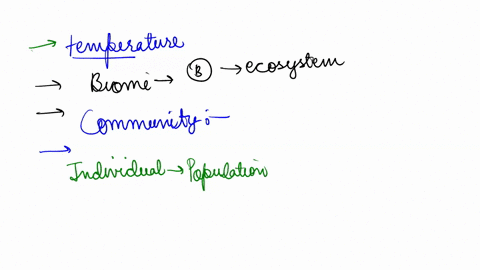 → temperature
→ Biome → B → ecosystem
→ Community :-
→ Individual → Population